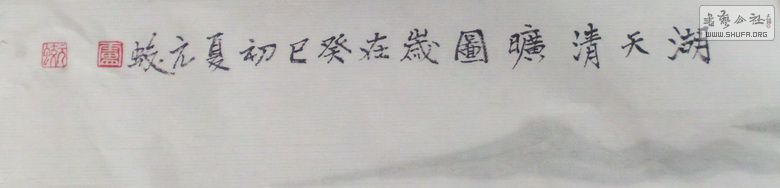 湖天清曠圖歲在癸巳初夏元蛟
盧
書藝公社
WWW.SHUFA.ORG